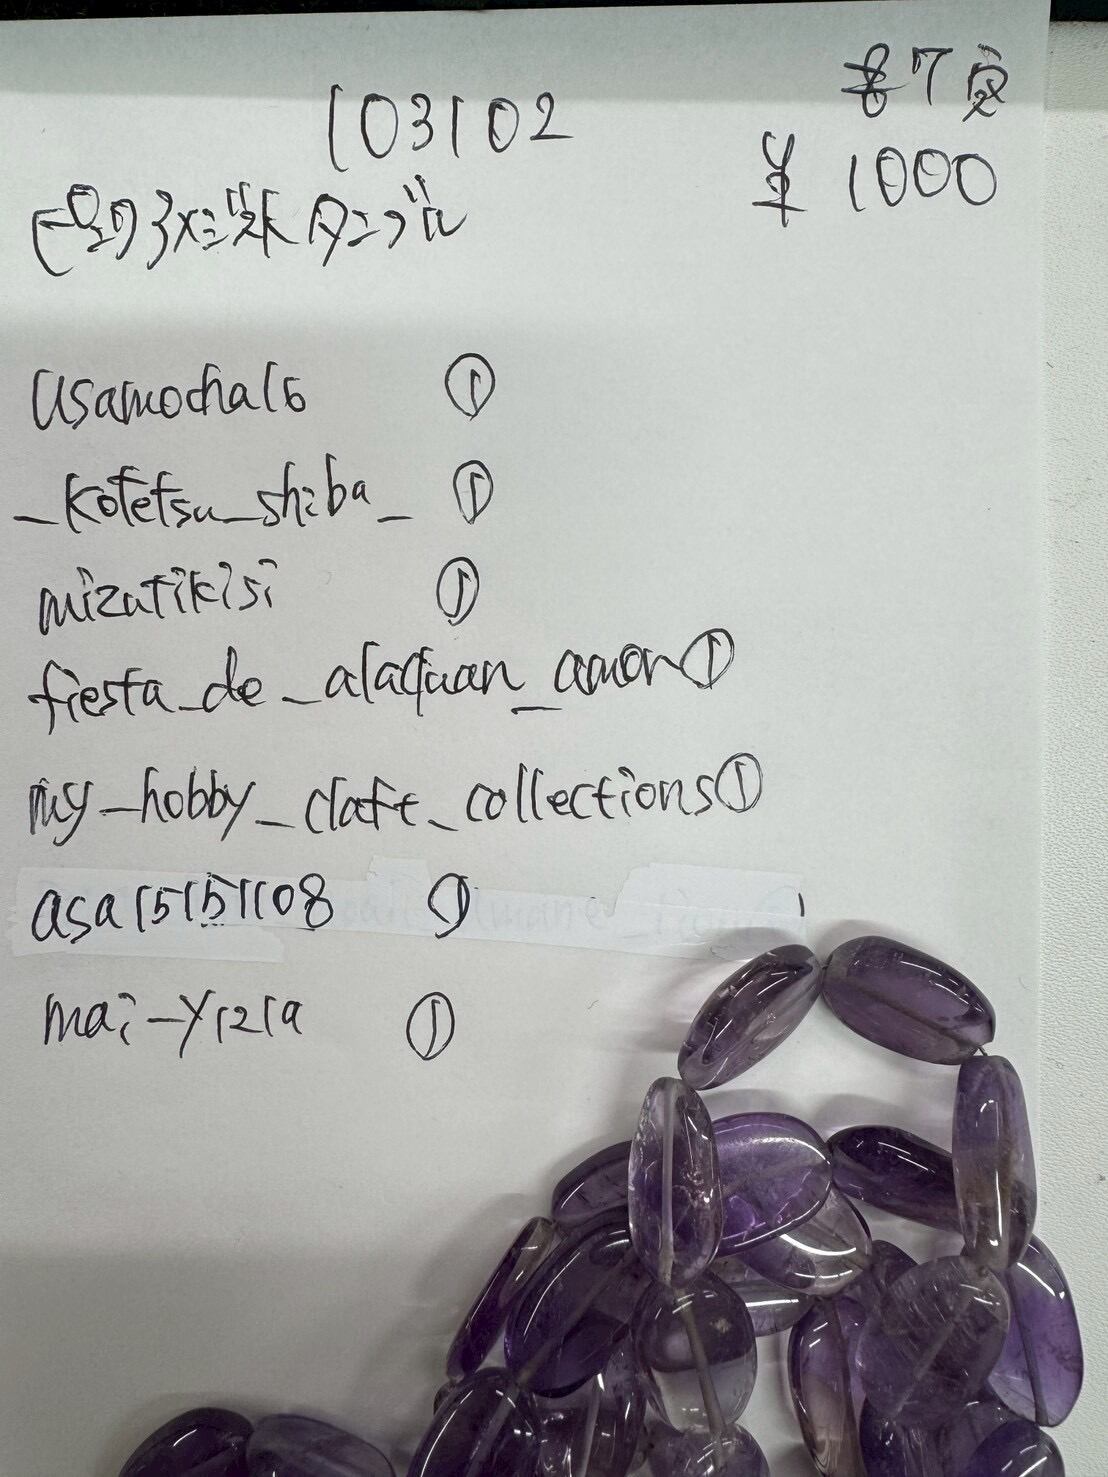 103102
7
¥ 1000
タンブル
usamocha16 ①
_kotetsu_shiba_ ①
mizutikisi ①
fiesta_de_alaquan_amor ①
my_hobby_claft_collections ①
asa15151108 ①
mai-y1219 ①